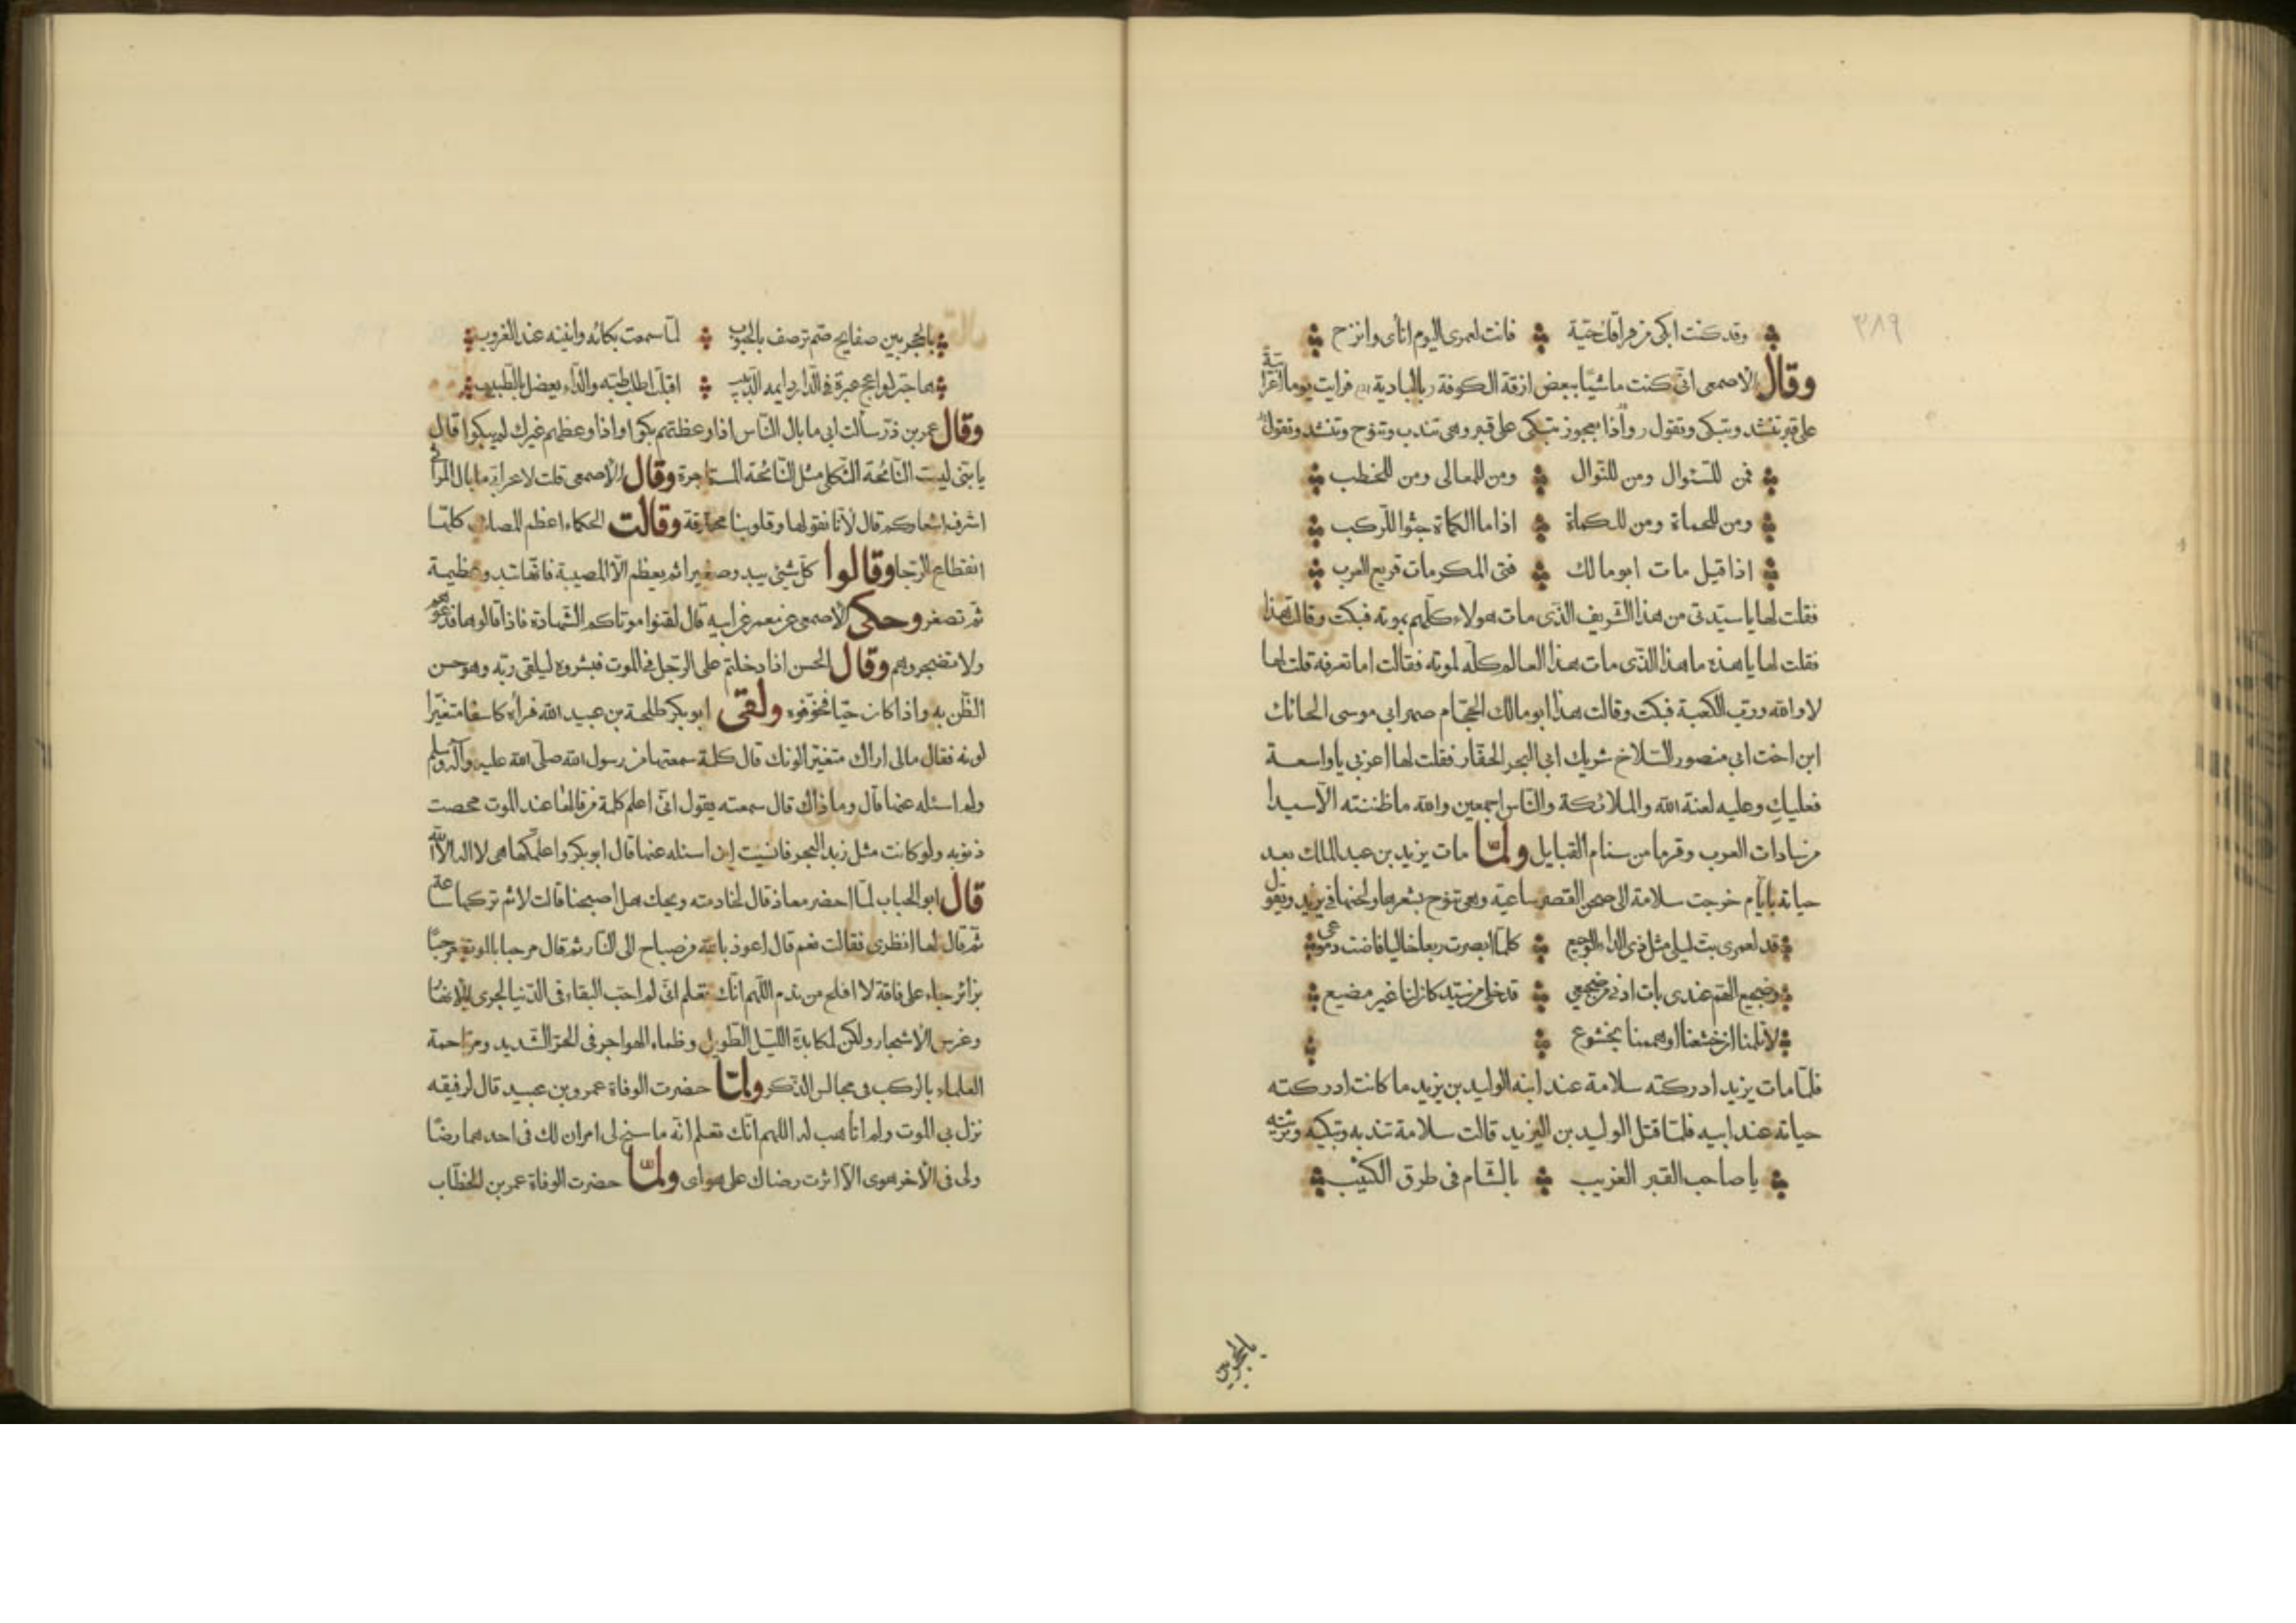 ٣٨٩
وقد كنت ابكى من فراقك حية فانت لعمرى اليوم انأى وانزح
وقال الاصمعى انى كنت ماشيا ببعض ازقة الكوفة بالبادية فرايت يوما اعرابية
على قبر تنشد وتبكى وتقول واذا بعجوز تبكى على قبر وهى تندب وتنوح وتنشد وتقول
فمن للسئوال ومن للنوال ومن للمعالى ومن للخطب
ومن للحماة ومن للكماة اذا ما الكماة جثوا للركب
اذا قيل مات ابو مالك فتى المكرمات قريع العرب
فقلت لها يا سيدتى من هذا الشريف الذى مات هولاء كلهم بموته فبكت وقالت هذا
فقلت لها يا هذه ما هذا الذى مات هذا العالم كله لموته فقالت اما تعرفه قلت لها
لا والله ورب الكعبة فبكت وقالت هذا ابو مالك الحجام صهر ابى موسى الحائك
ابن اخت ابى منصور السلاخ شريك ابى البحر الحفار فقلت لها اعزبى يا واسعة
فعليك وعليه لعنة الله والملائكة والناس اجمعين والله ما ظننته الا سيدا
من سادات العرب وقرما من سنام القبايل ولما مات يزيد بن عبد الملك بعد
حياته بايام خرجت سلامة الى صحن القصر ساعية وهى تنوح بشعرها ولحنها فى يزيد وتقول
قد لعمرى بت ليلى مثل ذى الداء الوجيع كلما ابصرت ربعا خاليا فاضت دموعى
وضجيع الهم عندى بات ادنى من ضجيعى قد خلى من سيد كان لنا غير مضيع
لا تلمنا ان خشعنا او هممنا بخشوع
فلما مات يزيد ادركته سلامة عند ابنه الوليد بن يزيد ما كانت ادركته
حياته عند ابيه فلما قتل الوليد بن اليزيد قالت سلامة تندبه وتبكيه وترثيه
يا صاحب القبر الغريب بالشام فى طرق الكثيب
بالحجر بين
بالحجر بين صفايح صم ترصف بالجبوب لما سمعت بكائه وانينه عند الغروب
اقبلت اطلب طبه والداء يعضل بالطبيب
وقال عمر بن ذر سألت ابى ما بال الناس اذا وعظتهم بكوا واذا وعظهم غيرك لم يبكوا قال
يا بنى ليست النائحة الثكلى مثل النائحة المستاجرة وقال الاصمعى قلت لاعرابى ما بال المراثى
اشرف اشعاركم قال لانا نقولها وقلوبنا محترقة وقالت الحكماء اعظم المصائب كلها
انقطاع الرجا وقالوا كل شيئ يبدو صغيرا ثم يعظم الا المصيبة فانها تبدو عظيمة
ثم تصغر وحكى الاصمعى عن معمر عن ابيه قال لقنوا موتاكم الشهادة فاذا قالوها فدعوهم
ولا تضجروهم وقال الحسن اذا دخلتم على الرجل فى الموت فبشروه ليلقى ربه وهو حسن
الظن به واذا كان حيا فخوفوه ولقى ابو بكر طلحة بن عبيد الله فرأه كاسفا متغيرا
لونه فقال مالى اراك متغيرا لونك قال كلمة سمعتها من رسول الله صلى الله عليه وآله وسلم
ولم اسئله عنها قال وما ذاك قال سمعته يقول انى اعلم كلمة من قالها عند الموت محصت
ذنوبه ولو كانت مثل زبد البحر فانسيت ان اسئله عنها قال ابو بكر واعلمكها هى لا اله الا الله
قال ابو الحباب لما احضر معاذ قال لخادمته ويحك هل اصبحنا قالت لا ثم تركها ساعة
ثم قال لها انظرى فقالت نعم قال اعوذ بالله من صباح الى النار ثم قال مرحبا بالموت مرحبا
بزائر جاء على فاقة لا افلح من ندم اللهم انك تعلم انى لم احب البقاء فى الدنيا لجرى الانهار
وغرس الاشجار ولكن لمكابدة الليل الطويل وظماء الهواجر فى الحر الشديد ومزاحمة
العلماء بالركب فى مجالس الذكر ولما حضرت الوفاة عمرو بن عبيد قال لرفيقه
نزل بى الموت ولم اتأهب له اللهم انك تعلم انه ما سنح لى امران لك فى احدهما رضا
ولى فى الاخر هوى الا اثرت رضاك على هواى ولما حضرت الوفاة عمر بن الخطاب